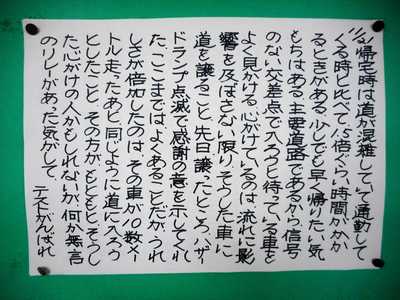 帰宅時は道が混雑していて通勤して
くる時と比べて1.5倍ぐらい時間がかか
るときがある。少しでも早く帰りたい気
もちはある。主要道路であるから、信号
のない交差点で入ろうと待っている車を
よく見かける。心がけているのは、流れに影
響を及ぼさない限り、そうした車に
道を譲ること。先日譲ったところ、ハザー
ドランプ点滅で感謝の意を示してくれ
た。ここまではよくあることだが、うれ
しさが倍加したのは、その車が10数メー
トル走ったあと、同じように道に入ろう
としたこと。その方が、もともと、そうし
た心がけの人かもしれないが、何か無言
のリレーがあった気がして。
テストがんばれ